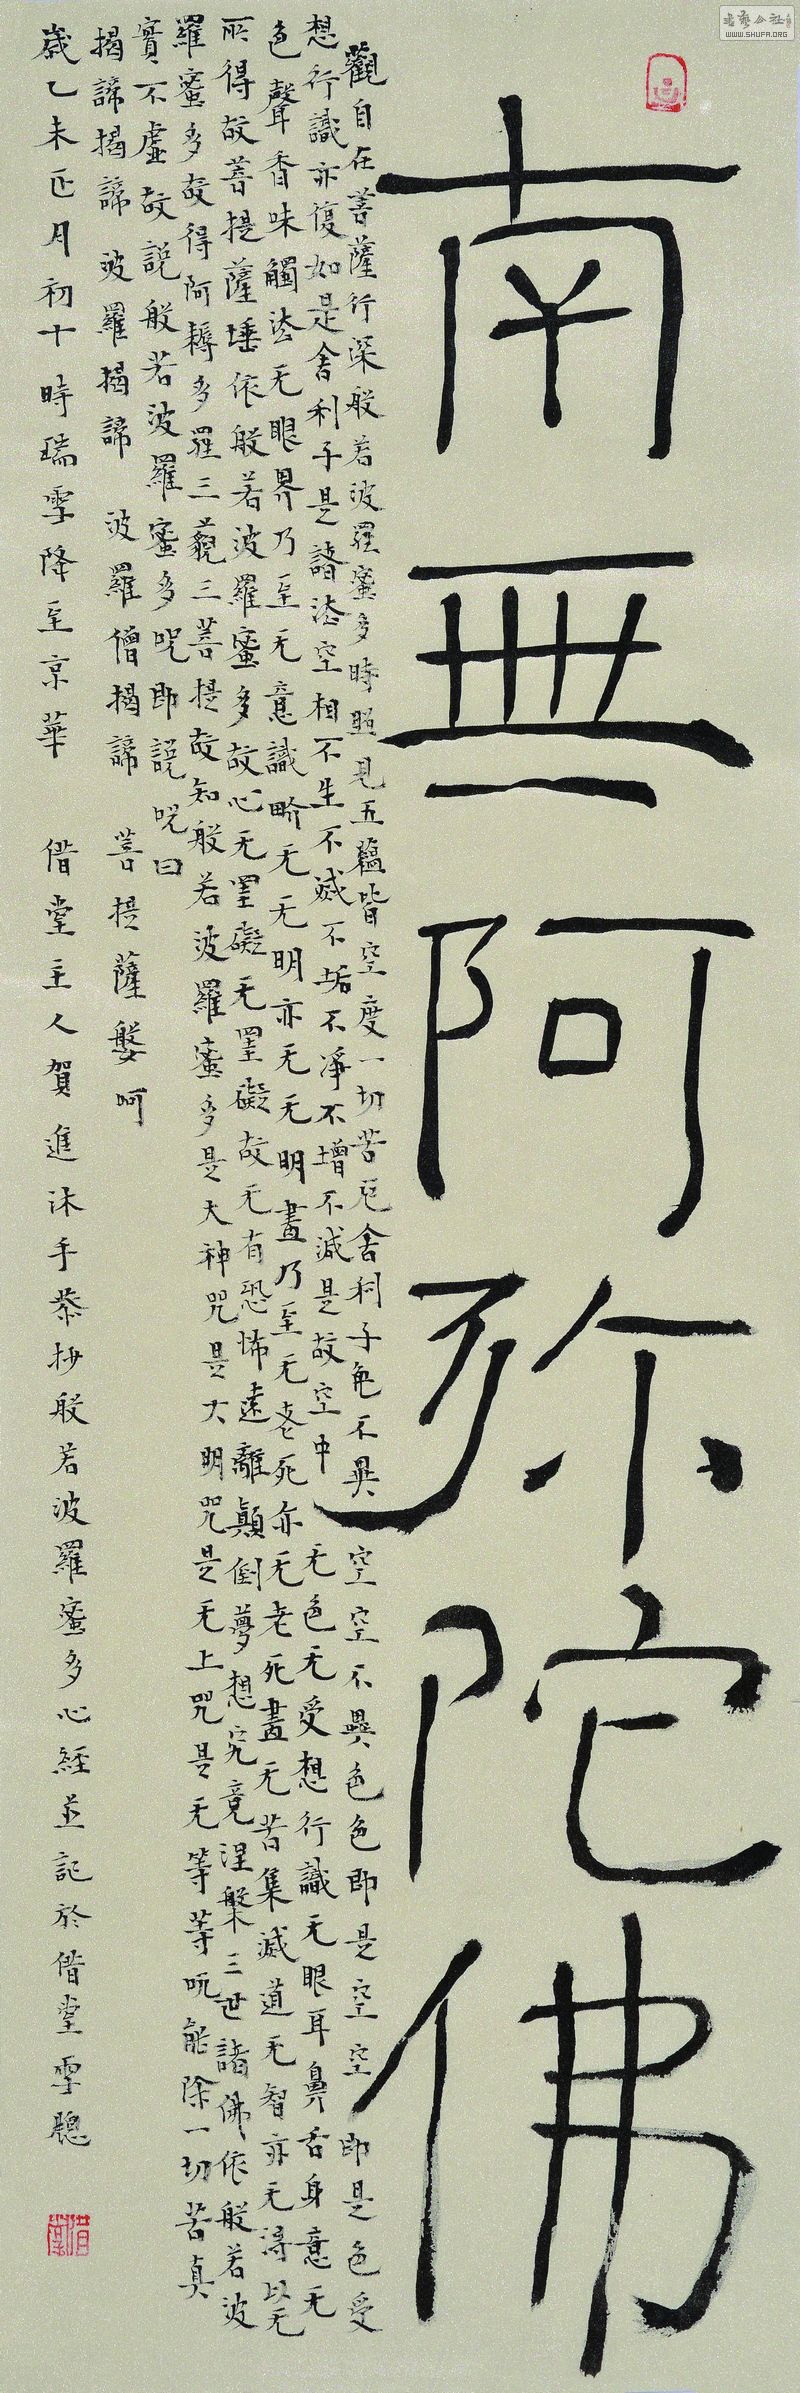 南無阿弥陀佛
觀自在菩薩行深般若波羅蜜多時照見五蘊皆空度一切苦厄舍利子色不異空空不異色色即是空空即是色受
想行識亦復如是舍利子是諸法空相不生不滅不垢不淨不增不減是故空中无色无受想行識无眼耳鼻舌身意无
色聲香味觸法无眼界乃至无意識界无无明亦无无明盡乃至无老死亦无老死盡无苦集滅道无智亦无得以无
所得故菩提薩埵依般若波羅蜜多故心无罣礙无罣礙故无有恐怖遠離顛倒夢想究竟涅槃三世諸佛依般若波
羅蜜多故得阿耨多羅三藐三菩提故知般若波羅蜜多是大神咒是大明咒是无上咒是无等等咒能除一切苦真
實不虛故說般若波羅蜜多咒即說咒曰
揭諦揭諦波羅揭諦 波羅僧揭諦 菩提薩婆呵
歲乙未正月初十時瑞雪降至京華 借堂主人賀進沐手恭抄般若波羅蜜多心經並記於借堂雪聽
借堂
書藝公社
WWW.SHUFA.ORG